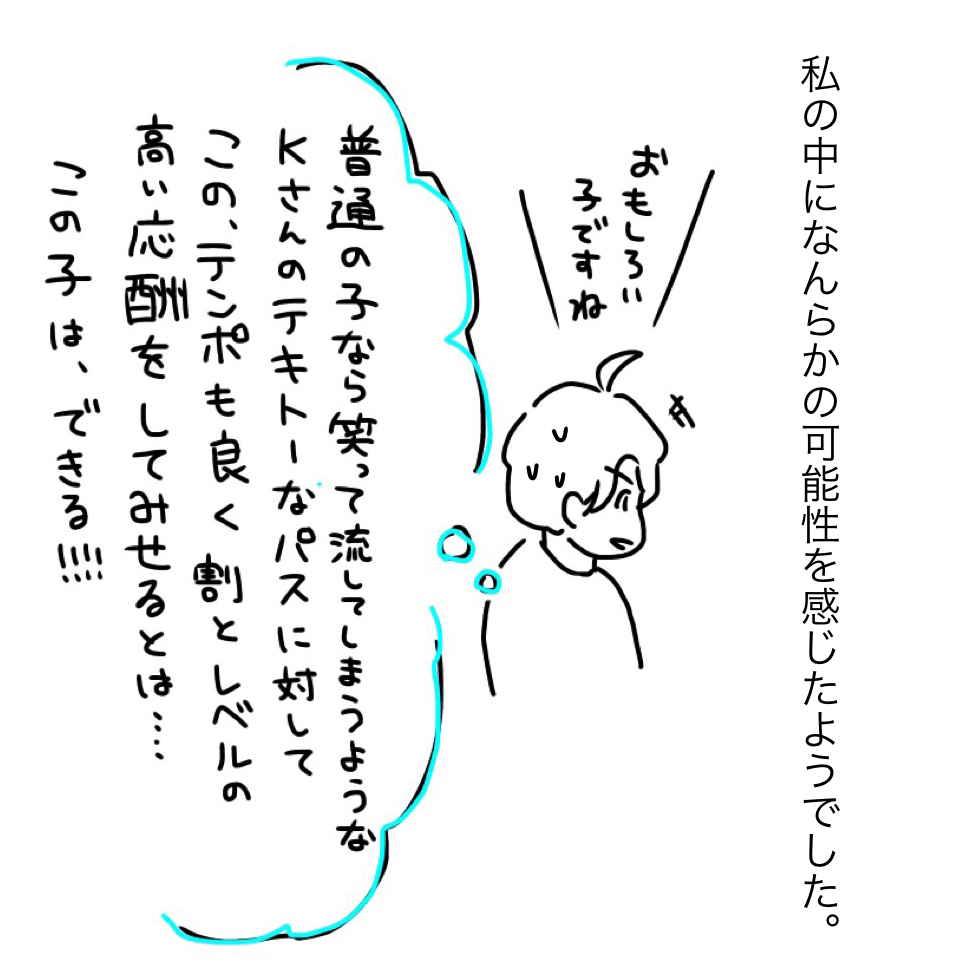 私の中になんらかの可能性を感じたようでした。
おもしろい
子ですね
普通の子なら笑って流してしまうような
Kさんのテキトーなパスに対して
この、テンポも良く割とレベルの
高い応酬をしてみせるとは…
この子は、できる!!!!